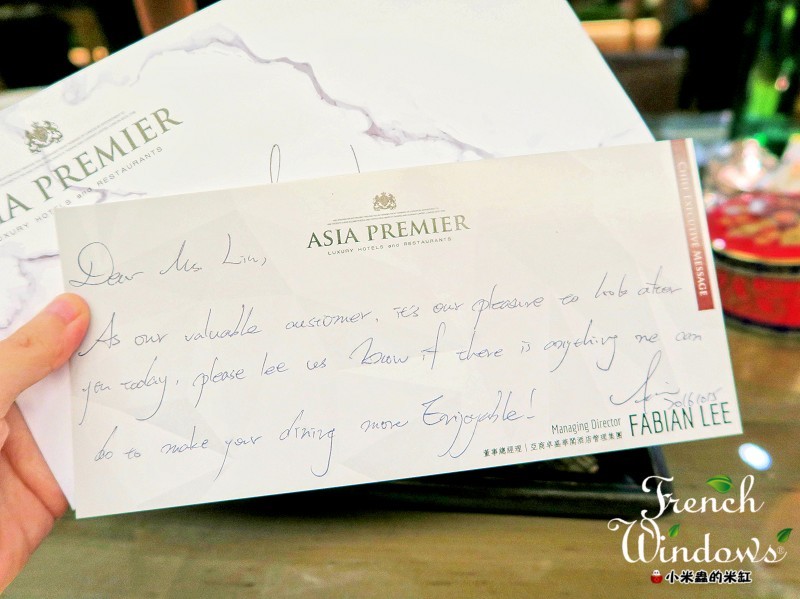 ASIA PREMIER
LUXURY HOTELS and RESTAURANTS
ASIA PREMIER
LUXURY HOTELS and RESTAURANTS
CHIEF EXECUTIVE MESSAGE
Dear Ms. Lin,
As our valuable customer, it's our pleasure to look after
you today, please let us know if there is anything we can
do to make your dining more Enjoyable!
20161015
Managing Director FABIAN LEE
董事總經理 | 亞商卓盛華閣酒店管理集團
French
Windows®
小米蟲的米缸